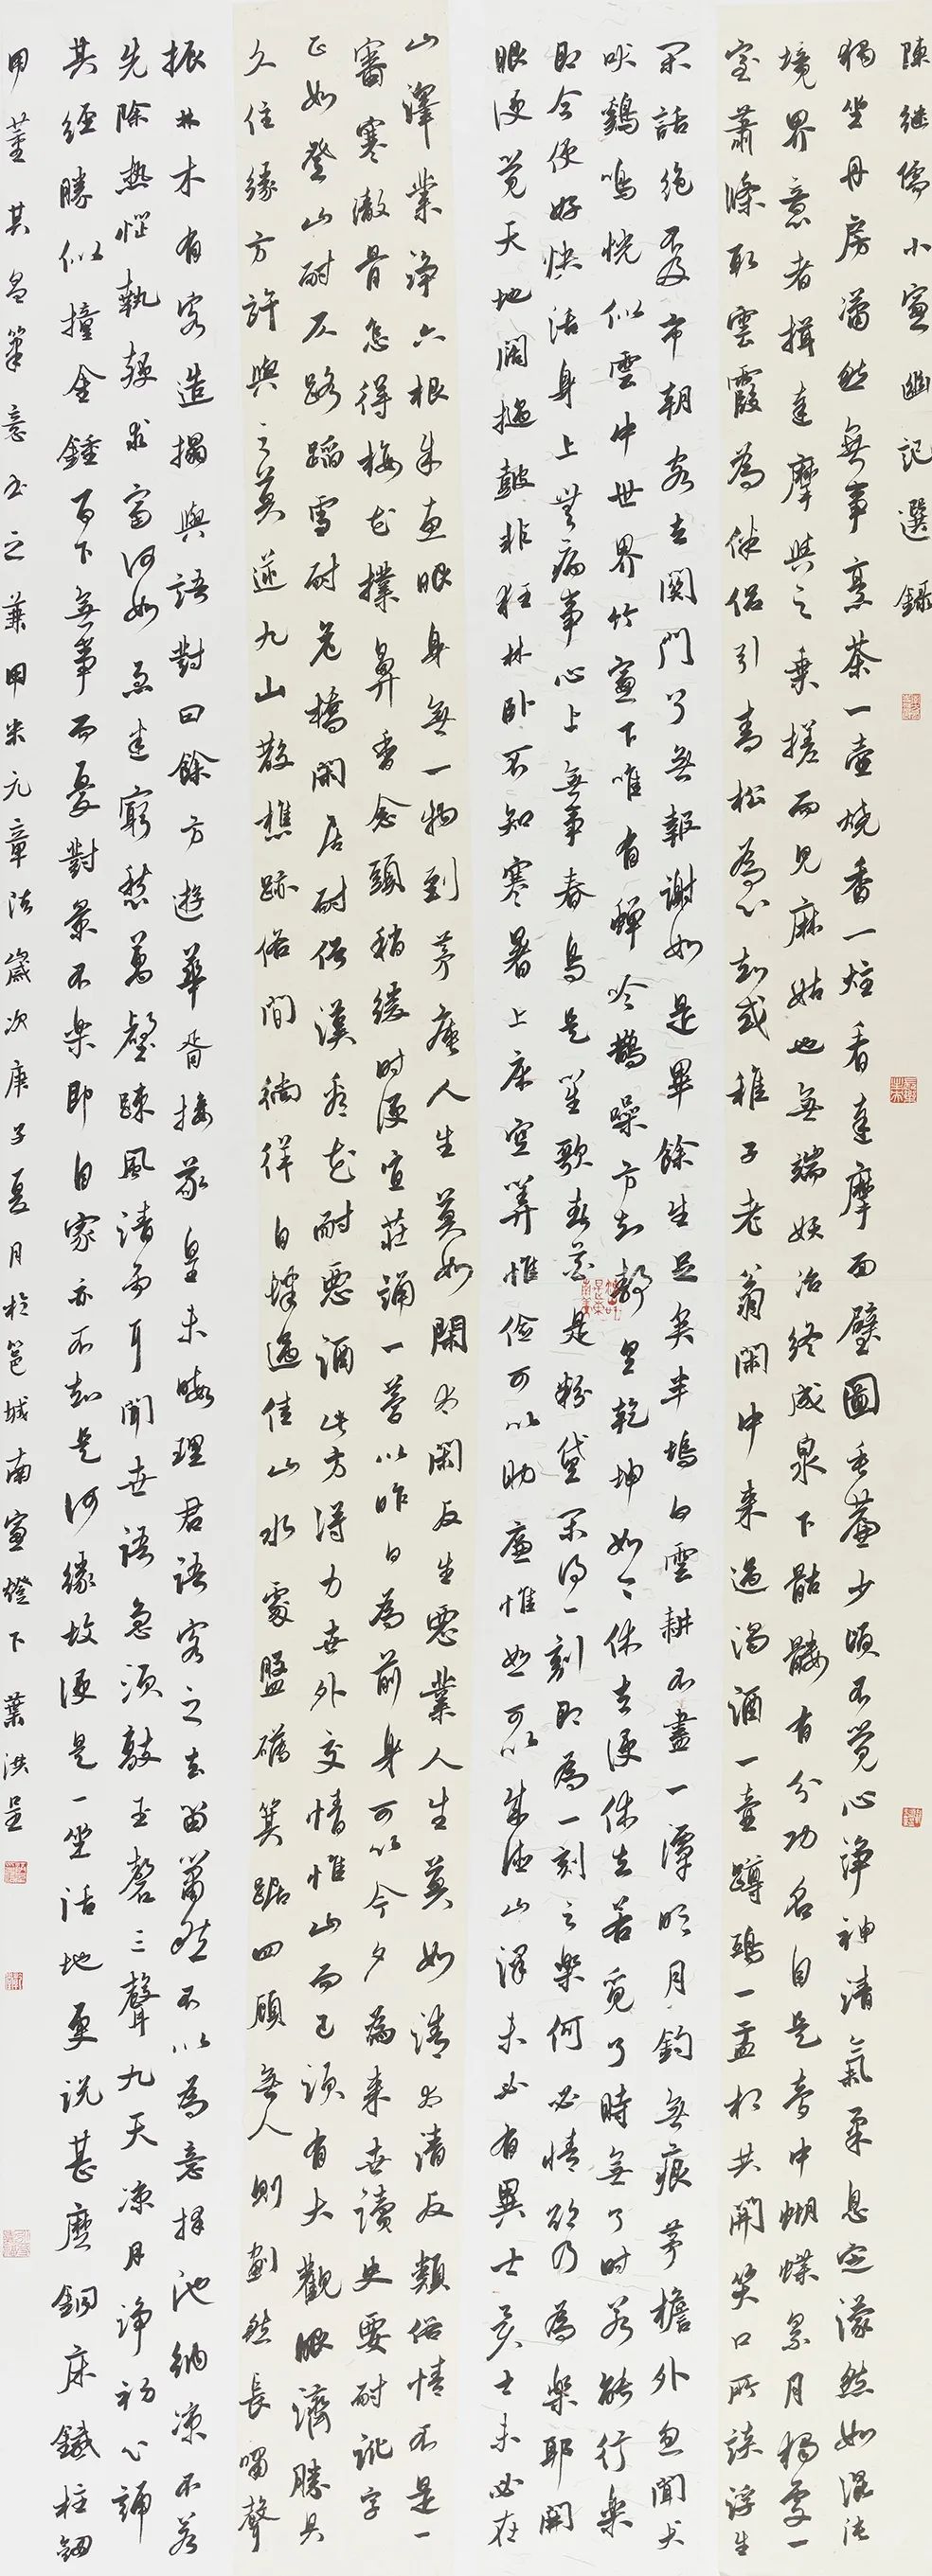 陳继儒小窗幽记選錄
獨坐丹房瀟然無事烹茶一壺燒香一炷看達摩面壁圖垂簾少頃不覺心淨神清氣柔息定濛然如混沌
境界意者揖達摩與之乘槎而見麻姑也無端妖冶終成泉下骷髏有分功名自是夢中蝴蝶累月獨處一
室蕭條取雲霞為伴侣引青松為心知或稚子老翁閑中來過濁酒一壺蹲鴟一盂相共開笑口所談浮生
閑話絕不及市朝客去関門了無報謝如是畢餘生足矣半塢白雲耕不盡一潭明月釣無痕茅檐外忽聞犬
吠鷄鳴恍似雲中世界竹窗下唯有蟬吟鵲噪方知靜里乾坤如今休去便休去若覓了時無了时若能行樂
即今便好快活身上無病事心上無事春鳥是笙歌春花是粉黛閑得一刻即為一刻之樂何必情欲乃為樂耶開
眼便覺天地闊撾鼓非狂林卧不知寒暑上床空算惟儉可以助廉惟恕可以成德山澤未必有異士異士未必在
山澤業淨六根成慧眼身無一物到茅庵人生莫如閑太閑反生惡業人生莫如清太清反類俗情不是一
番寒徹骨怎得梅花撲鼻香念頭稍緩时便宜莊誦一遍以昨日為前身可以今夕為来世讀史要耐訛字
正如登山耐仄路蹈雪耐危橋閑居耐俗漢看花耐惡酒此方得力世外交情惟山而已須有大觀眼濟勝具
久住緣方許與之莫逆九山散樵跡俗間徜徉自肆遇佳山水處盤礴箕踞四顧無人則劃然長嘯聲
振林木有客造榻與語對曰餘方遊華胥接羲皇未暇理君語客之去留蕭然不以為意擇池納凉不若
先除熱惱執鞭求富何如急遣窮愁萬壑疎風清兩耳聞世語急須敲玉磬三聲九天凉月淨初心誦
其經勝似撞金鍾百下無事而憂對景不樂即自家亦不知是何緣故便是一坐活地更说甚麼銅床鐵柱劍
用董其昌筆意书之兼用米元章法歲次庚子夏月於邕城南窗燈下葉洪呈